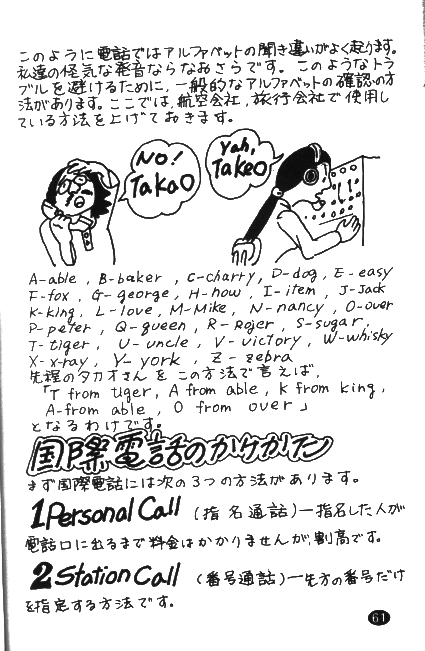 このように電話ではアルファベットの聞き違いがよく起ります。
私達の怪気な発音ならなおさらです。このようなトラ
ブルを避けるために、一般的なアルファベットの確認の方
法があります。ここでは、航空会社、旅行会社で使用し
ている方法を上げておきます。
NO!
TaKaO
Yah,
TakeO
A-able , B-baker , C-charry, D-dog, E-easy
F-fox , G-george, H-how , I-item , J-Jack
K-king, L-love, M-Mike , N-nancy , O-over
P-peter , Q-queen , R-Rojer , S-sugar,
T-tiger , U-uncle , V-victory , W-whisky
X-x-ray , Y-york , Z-zebra
先程のタカオさんをこの方法で言えば、
「T from tiger, A from able , K from king,
A-from able , O from over」
となるわけです。
国際電話のかけかた
まず国際電話には次の3つの方法があります。
1 Personal Call (指名通話)ー指名した人が
電話口に出るまで料金はかかりませんが、割高です。
2 Station Call (番号通話)ー先方の番号だけ
を指定する方法です。
61